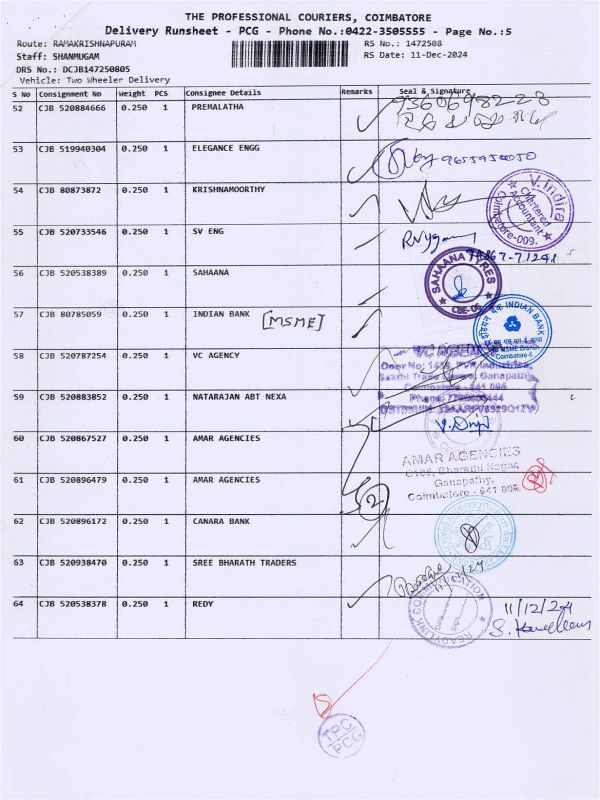 THE PROFESSIONAL COURIERS, COIMBATORE
Delivery Runsheet - PCG - Phone No.:0422-3505555 - Page No.:5
Route: RAMAKRISHNAPURAM
RS No.: 1472508
Staff: SHANMUGAM
RS Date: 11-Dec-2024
DRS No.: DCJB147250805
Vehicle: Two Wheeler Delivery
S No Consignment No Weight PCS Consignee Details Remarks Seal & Signature
52 CJB 520884666 0.250 1 PREMALATHA
9360698228
53 CJB 519940304 0.250 1 ELEGANCE ENGG
54 CJB 80873872 0.250 1 KRISHNAMOORTHY
V. Indira
Chartered
Accountant
55 CJB 520733546 0.250 1 SV ENG
56 CJB 520538389 0.250 1 SAHAANA
CBE-06
57 CJB 80785059 0.250 1 INDIAN BANK [MSME]
INDIAN BANK
MSME Branch
Coimbatore-6
58 CJB 520787254 0.250 1 VC AGENCY
VC AGENCY
59 CJB 520883852 0.250 1 NATARAJAN ABT NEXA
60 CJB 520867527 0.250 1 AMAR AGENCIES
AMAR AGENCIES
Bharathi Nagar
Ganapathy,
Coimbatore - 641 006
61 CJB 520896479 0.250 1 AMAR AGENCIES
2
62 CJB 520896172 0.250 1 CANARA BANK
63 CJB 520938470 0.250 1 SREE BHARATH TRADERS
64 CJB 520538378 0.250 1 REDY
READYLINK COMMUNICATION
11/12/24
TPC
PCG